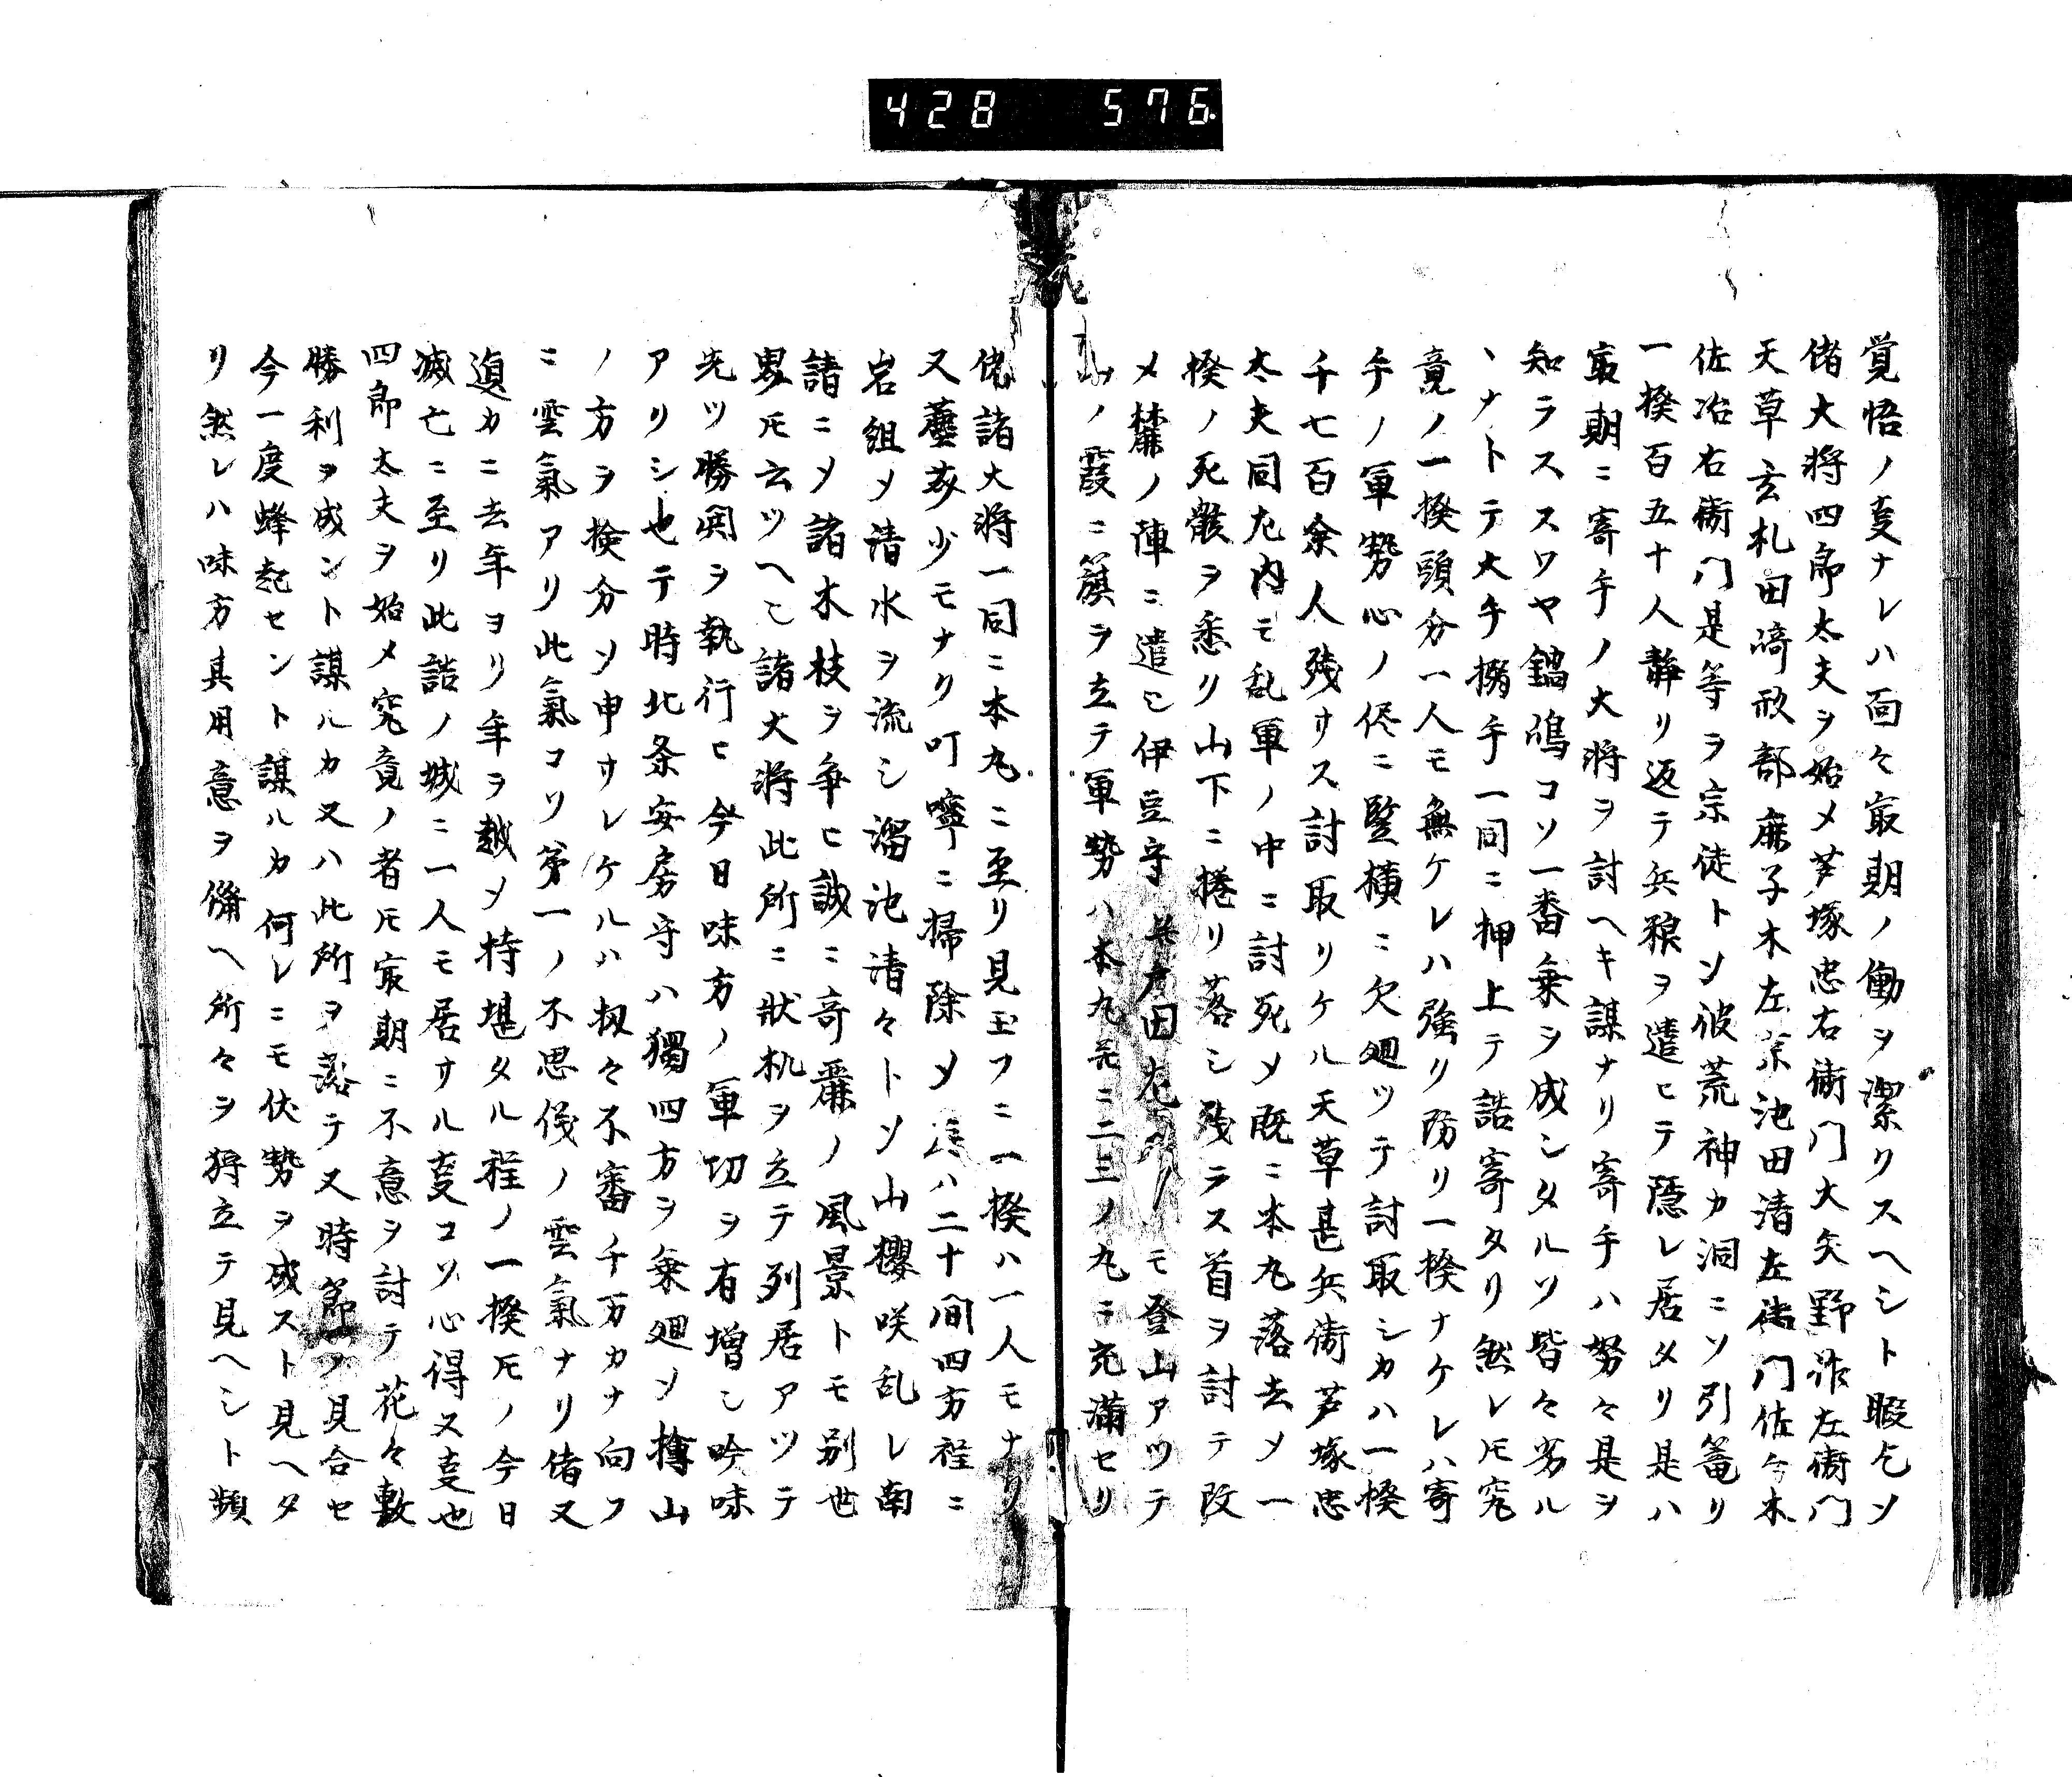 428 576
覚悟ノ亊ナレハ面々㝡期ノ働ヲ潔クスヘシト暇乞ソ
偖大将四郎太夫ヲ始メ芦塚忠右衛門大矢野作左衛門
天草玄札田﨑刑部麻子木左京池田清左衛門佐々木
佐治右衛門是等ヲ宗徒トシ彼荒神カ洞ニソ引篭リ
一揆百五十人静リ返テ兵粮ヲ遣ヒテ隠レ居タリ是ハ
㝡期ニ寄手ノ大将ヲ討ヘキ謀ナリ寄手ハ努々是ヲ
知ラススワヤ鍋嶋コソ一番乗ヲ成シタルソ皆々劣ル
ヽナトテ大手搦手一同ニ押上テ詰寄タリ然レ𪜈究
竟ノ一揆頭分一人モ無ケレハ強リ防リ一揆ナケレハ寄
手ノ軍勢心ノ侭ニ竪横ニ欠廻ツテ討取シカハ一揆
千七百余人残サス討取リケル天草甚兵衛芦塚忠
太夫同左内モ乱軍ノ中ニ討死メ既ニ本丸落去メ一
揆ノ死骸ヲ悉リ山下ニ捲リ落シ残ラス首ヲ討テ改
メ麓ノ陣ニ遣シ伊豆守戸田左門モ登山アツテ
ノ霞ニ籏ヲ立テ軍勢ハ本丸并ニ二三ノ丸ニ充満セリ
偖諸大将一同ニ本丸ニ至リ見玉フニ一揆ハ一人モナリ
又塵芥少モナリ叮嚀ニ掃除メ庭ハ二十間四方程ニ
岩組メ清水ヲ流シ溜池清々トソ山櫻咲乱レ南
諸ニメ諸木枝ヲ争ヒ誠ニ奇麗ノ風景トモ別世
界𪜈云ツヘシ諸大将此所ニ狀机ヲ立テ列居アツテ
先ツ勝鬨ヲ執行ヒ今日味方ノ軍切ヲ有増シ吟味
アリシ也テ時北条安房守ハ獨四方ヲ乗廻ソ擣山
ノ方ヲ検分ソ申サレケルハ扨々不審千万カナ向フ
ニ雲氣アリ此氣コソ第一ノ不思儀ノ雲氣ナリ偖又
遉カニ去年ヨリ年ヲ越メ持堪タル程ノ一揆𪜈ノ今日
滅亡ニ至リ此詰ノ城ニ一人モ居サル亊コソ心得ヌ亊也
四郎太夫ヲ始メ究竟ノ者𪜈㝡期ニ不意ヲ討テ花々敷
勝利ヲ成ント謀ルカ又ハ此所ヲ落テ又時節ヲ見合セ
今一度蜂起セント謀ルカ何レニモ伏勢ヲ成スト見ヘタ
リ然レハ味方其用意ヲ備ヘ所々ヲ狩立テ見ヘシト頻